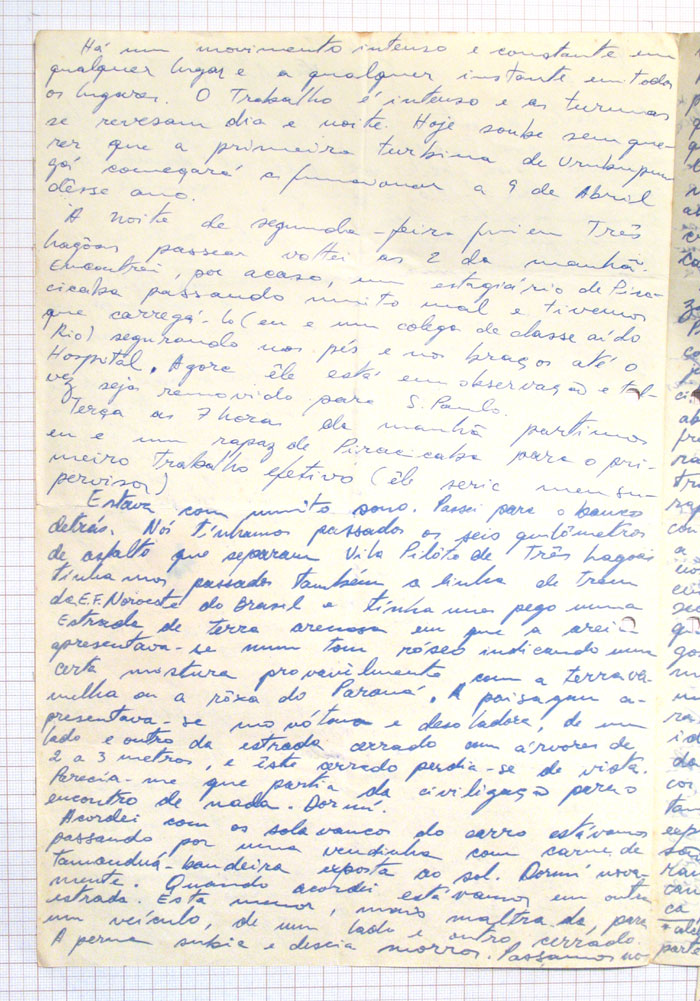 Há um movimento intenso e constante em
qualquer lugar e a qualquer instante em todos
os lugares. O Trabalho é intenso e as turmas
se revesam dia e noite. Hoje soube sem que-
rer que a primeira turbina de Urubupun
gá começará a funcionar a 9 de Abril
dêsse ano.
À noite de segunda-feira fui em Três
Lagôas passear voltei as 2 da manhã.
Encontrei, por acaso, um estagiário de Pira-
cicaba passando muito mal e tivemos
que carregá-lo (eu e um colega de classe aí do
Rio) segurando nos pés e nos braços até o
Hospital. Agora êle está em observação e tal-
vez seja removido para S. Paulo.
Terça as 7 horas da manhã partimos
eu e um rapaz de Piracicaba para o pri-
meiro trabalho efetivo (êle seria meu su-
pervisor)
Estava com muito sono. Passei para o banco
detrás. Nós tínhamos passados os seis quilômetros
de asfalto que separam Vila Pilôto de Três Lagoas
tinhamos passados também a linha de trem
da E.F. Noroeste do Brasil e tínhamos pego uma
Estrada de terra arenosa em que a areia
apresentava-se num tom róseo indicando uma
certa mistura provavilmente com a terra va-
melha ou a rôxa do Paraná. A paisagem a-
presentava-se monótona e desoladora, de um
lado e outro da estrada cerrado com árvores de
2 a 3 metros, e êste cerrado perdia-se de vista.
Parecia-me que partia da civiligação para o
encontro de nada. Dormí.
Acordei com os solavancos do carro estávamos
passando por uma vendinha com carne de
Tamanduá-bandeira exposta ao sol. Dormí nova-
mente. Quando acordei estávamos em outra
estrada. Esta menor, mais maltratada, para
um veículo, de um lado e outro cerrado.
A perua subia e descia morros. Passamos no